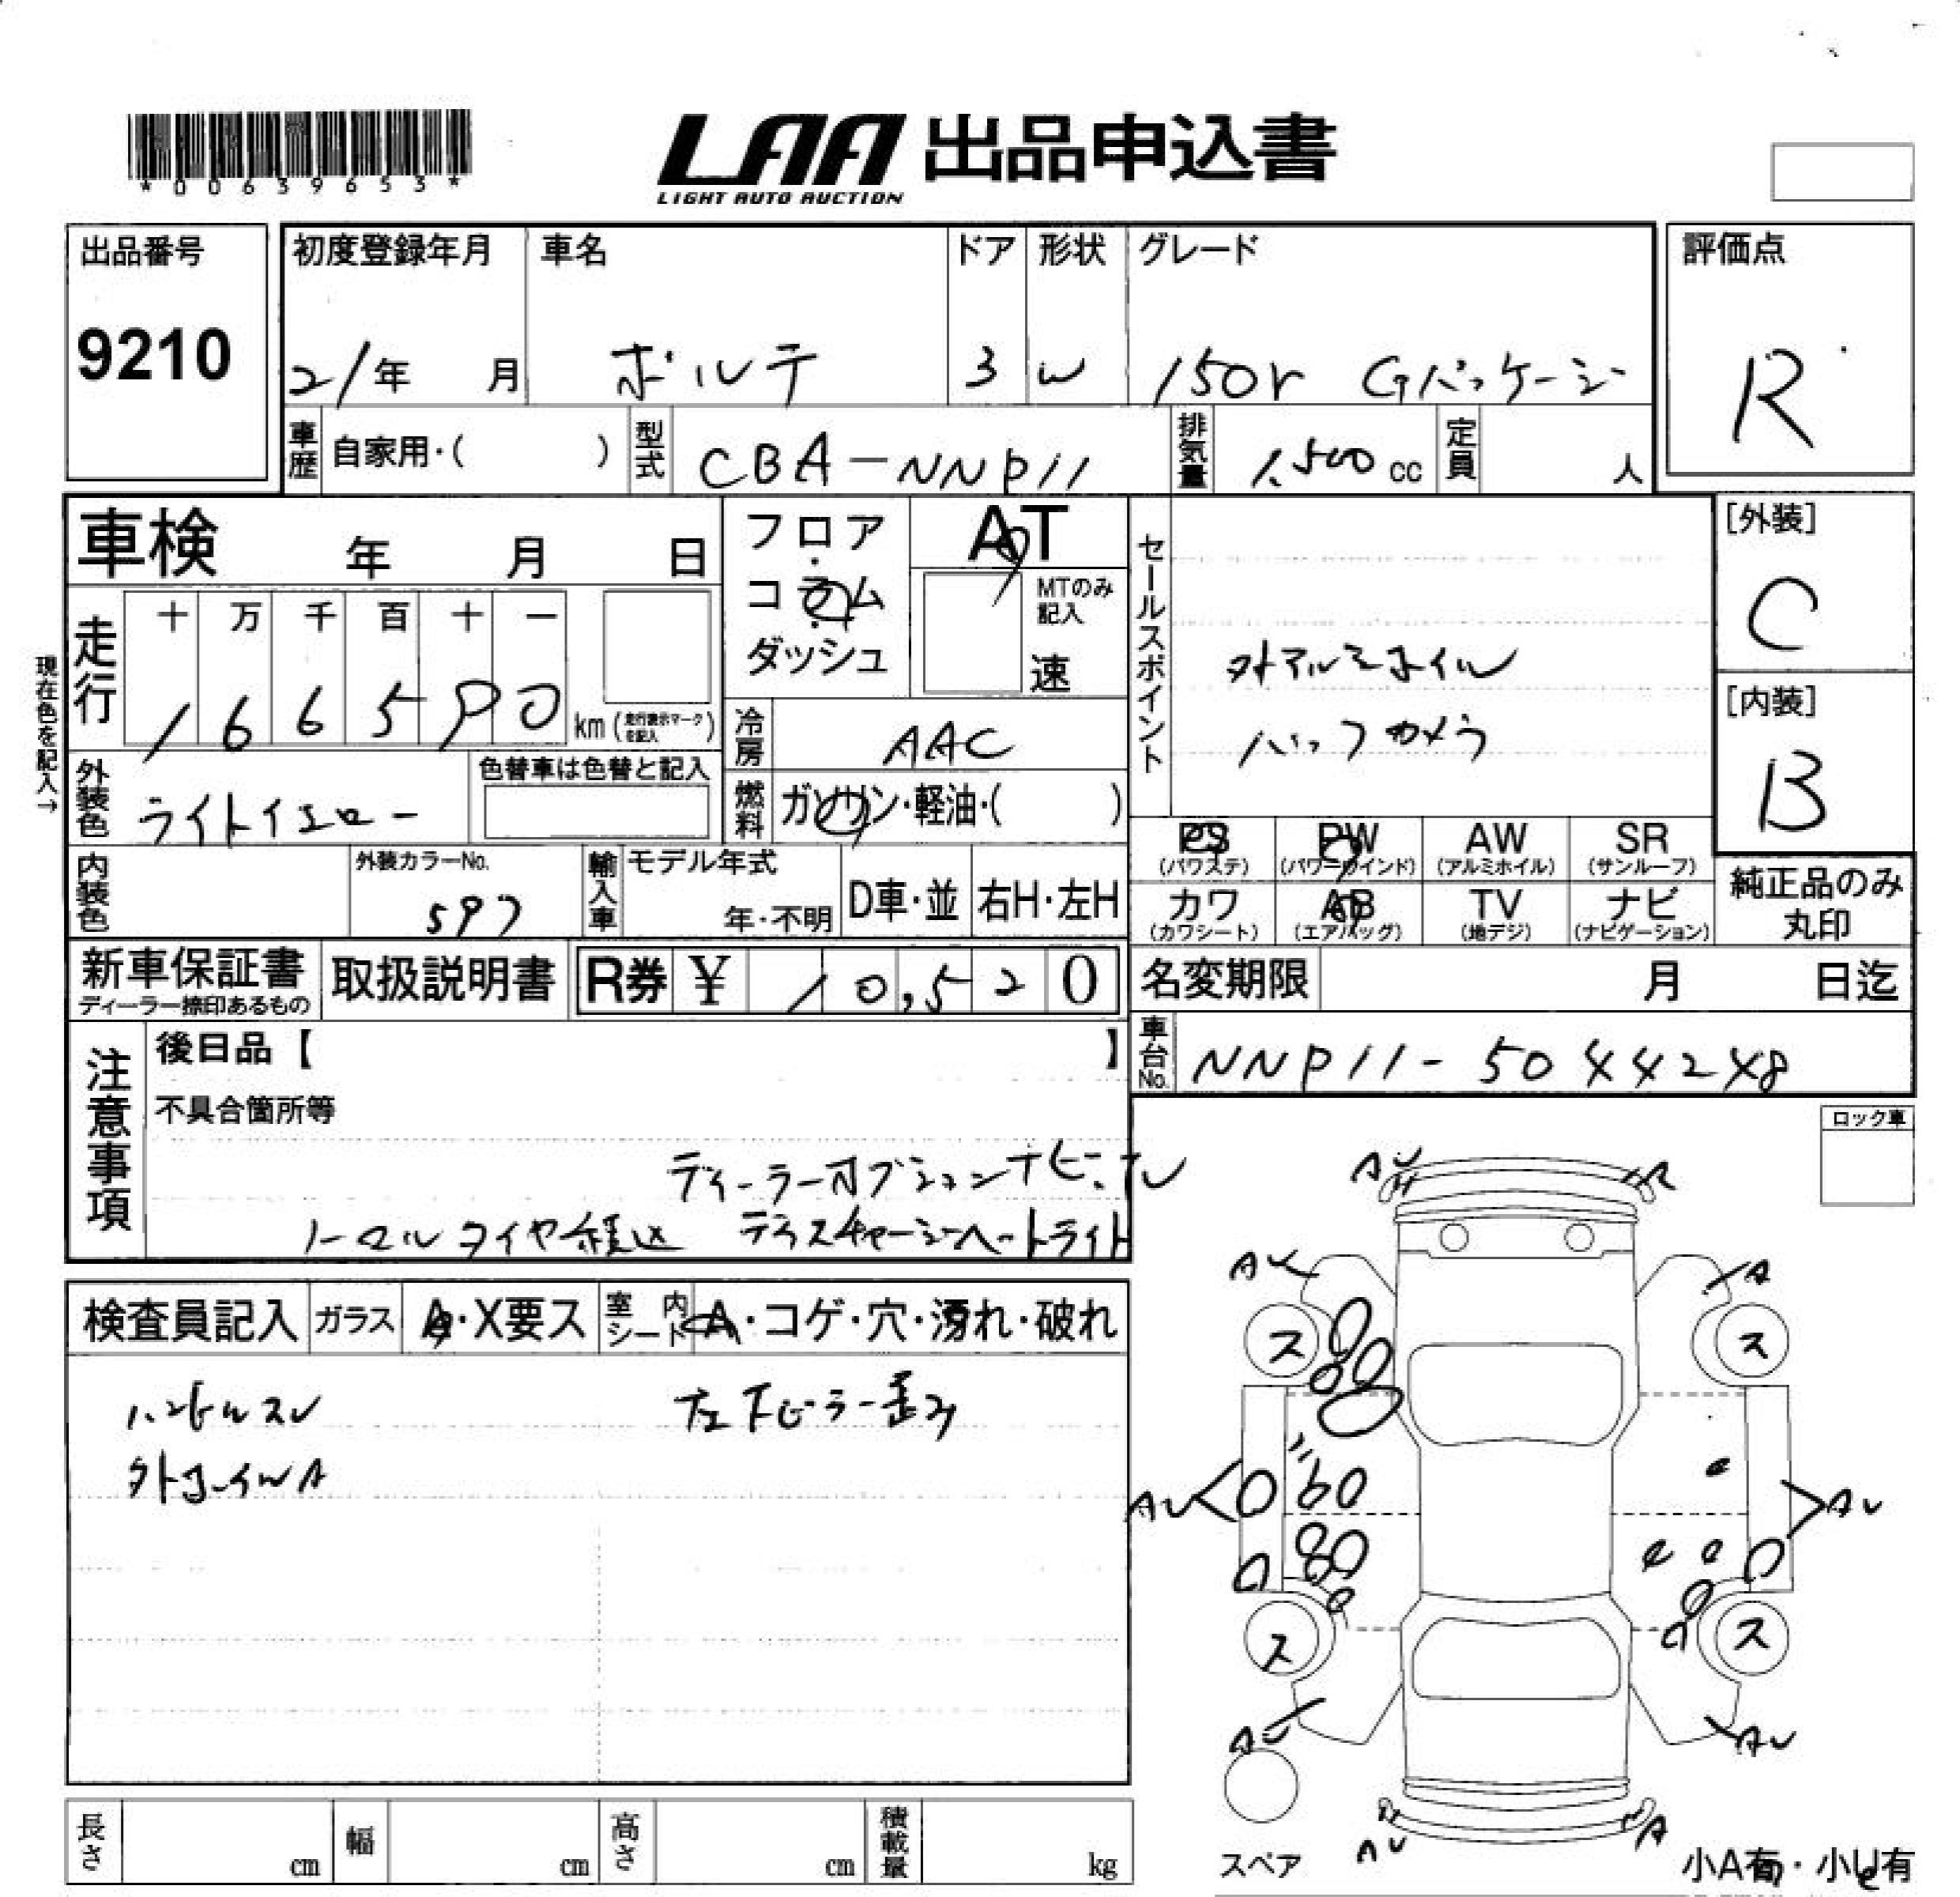 *00639653*
LAA 出品申込書
LIGHT AUTO AUCTION
出品番号
9210
初度登録年月
21年 月
車名
ポルテ
ドア
3
形状
W
グレード
150r Gパッケージ
評価点
R
車歴 自家用・( )
型式 CBA-NNP11
排気量 1,500 cc
定員 人
車検 年 月 日
フロア・コラム・ダッシュ
AT
MTのみ記入
速
セールスポイント
外アルミホイル
バックカメラ
[外装]
C
[内装]
B
現在色を記入→
走行
十 万 千 百 十 一
1 6 6 5 9 0 km (走行表示マークを記入)
冷房 AAC
外装色 ライトイエロー
色替車は色替と記入
燃料 ガソリン・軽油・( )
PS (パワステ)
PW (パワーウインド)
AW (アルミホイル)
SR (サンルーフ)
内装色
外装カラーNo.
597
輸入車
モデル年式
年・不明
D車・並
右H・左H
カワ (カワシート)
AB (エアバッグ)
TV (地デジ)
ナビ (ナビゲーション)
純正品のみ丸印
新車保証書
ディーラー捺印あるもの
取扱説明書
R券 ¥ 10,520
名変期限 月 日迄
注意事項
後日品【 】
車台No. NNP11-5044248
不具合箇所等
ディーラーオプションナビ、テレ
ノーマルタイヤ積込 ディスチャージヘットライト
ロック車
検査員記入
ガラス A・X要ス
室内シート A・コゲ・穴・汚れ・破れ
ハンドルスレ
左下ピラー歪み
外ホイルA
AU
A
AU
A
ス
ス
AU
AU
ス
ス
AU
AU
AU
A
スペア
小A有・小U有
長さ cm
幅 cm
高さ cm
積載量 kg